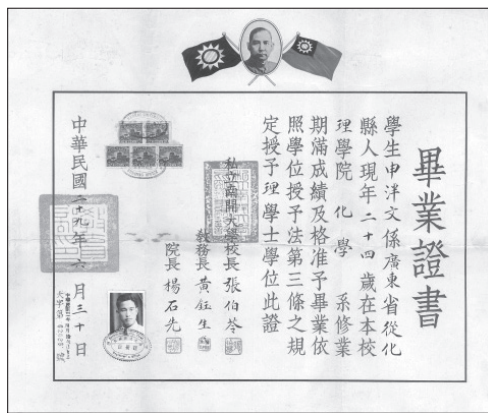 畢業證書
學生申泮文係廣東省從化
縣人現年二十四歲在本校
理學院化學系修業
期滿成績及格准予畢業依
照學位授予法第三條之規
定授予理學士學位此證
私立南開大學校長張伯苓
教務長黃鈺生
院長楊石先
中華民國二十九年六月三十日